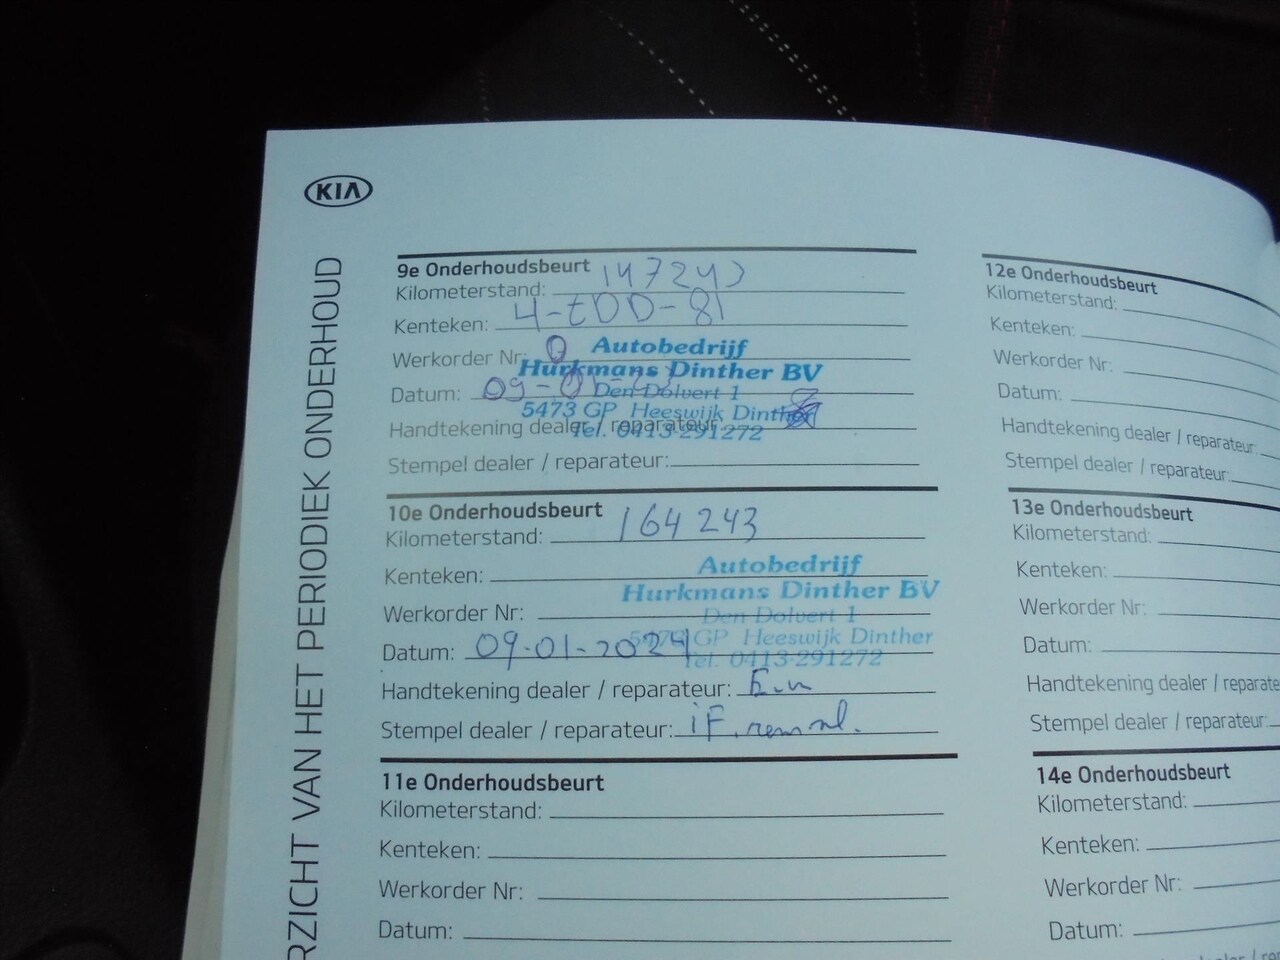 KIA
RZICHT VAN HET PERIODIEK ONDERHOUD
9e Onderhoudsbeurt
Kilometerstand: 147243
Kenteken: 4-tDD-81
Werkorder Nr:
Autobedrijf
Hurkmans Dinther BV
Datum: 09-01-
Den Dolvert 1
5473 GP Heeswijk Dinther
Handtekening dealer / reparateur:
Tel. 0413-291272
Stempel dealer / reparateur:
10e Onderhoudsbeurt
Kilometerstand: 164243
Autobedrijf
Kenteken:
Hurkmans Dinther BV
Werkorder Nr:
Den Dolvert 1
5473 GP Heeswijk Dinther
Datum: 09-01-2024
Tel. 0413-291272
Handtekening dealer / reparateur:
Stempel dealer / reparateur:
11e Onderhoudsbeurt
Kilometerstand:
Kenteken:
Werkorder Nr:
Datum:
12e Onderhoudsbeurt
Kilometerstand:
Kenteken:
Werkorder Nr:
Datum:
Handtekening dealer / reparateur:
Stempel dealer / reparateur:
13e Onderhoudsbeurt
Kilometerstand:
Kenteken:
Werkorder Nr:
Datum:
Handtekening dealer / reparate
Stempel dealer / reparateur:
14e Onderhoudsbeurt
Kilometerstand:
Kenteken:
Werkorder Nr:
Datum: